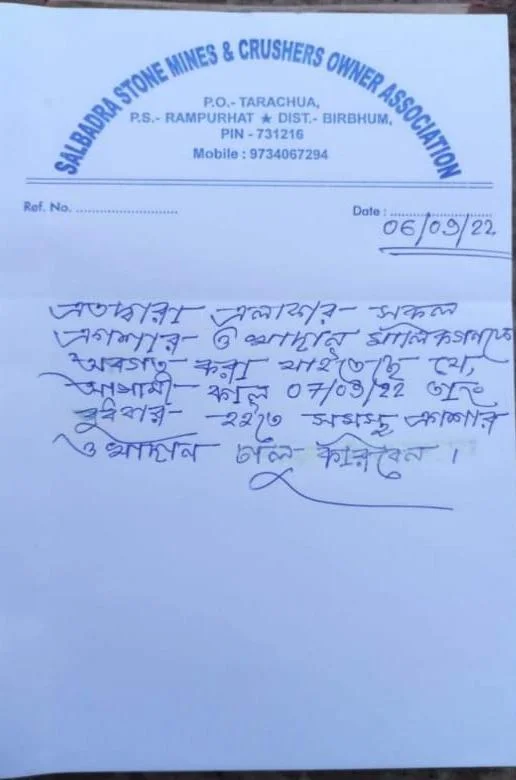 SALBADRA STONE MINES & CRUSHERS OWNER ASSOCIATION
P.O.- TARACHUA,
P.S.- RAMPURHAT ★ DIST.- BIRBHUM,
PIN - 731216
Mobile : 9734067294
Ref. No. ............................ Date : ............................
06/09/22
এতদ্বারা এলাকার সকল
ক্রাশার ও খাদান মালিকগনকে
অবগত করা যাইতেছে যে,
আগামী কাল 07/09/22 তাং
বুধবার হইতে সমস্ত ক্রাশার
ও খাদান চালু করিবেন ।